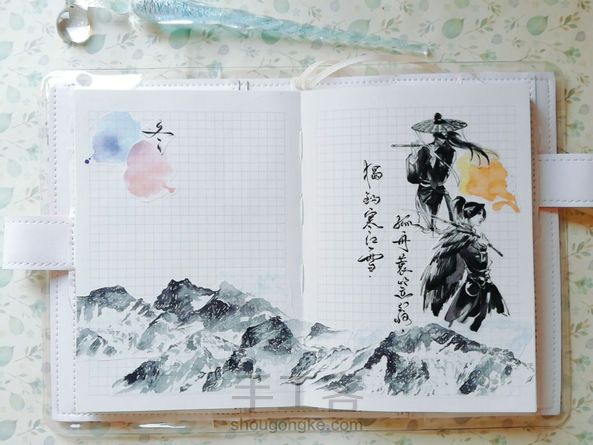 冬
孤舟蓑笠翁，
独钓寒江雪。
手工客
shougongke.com